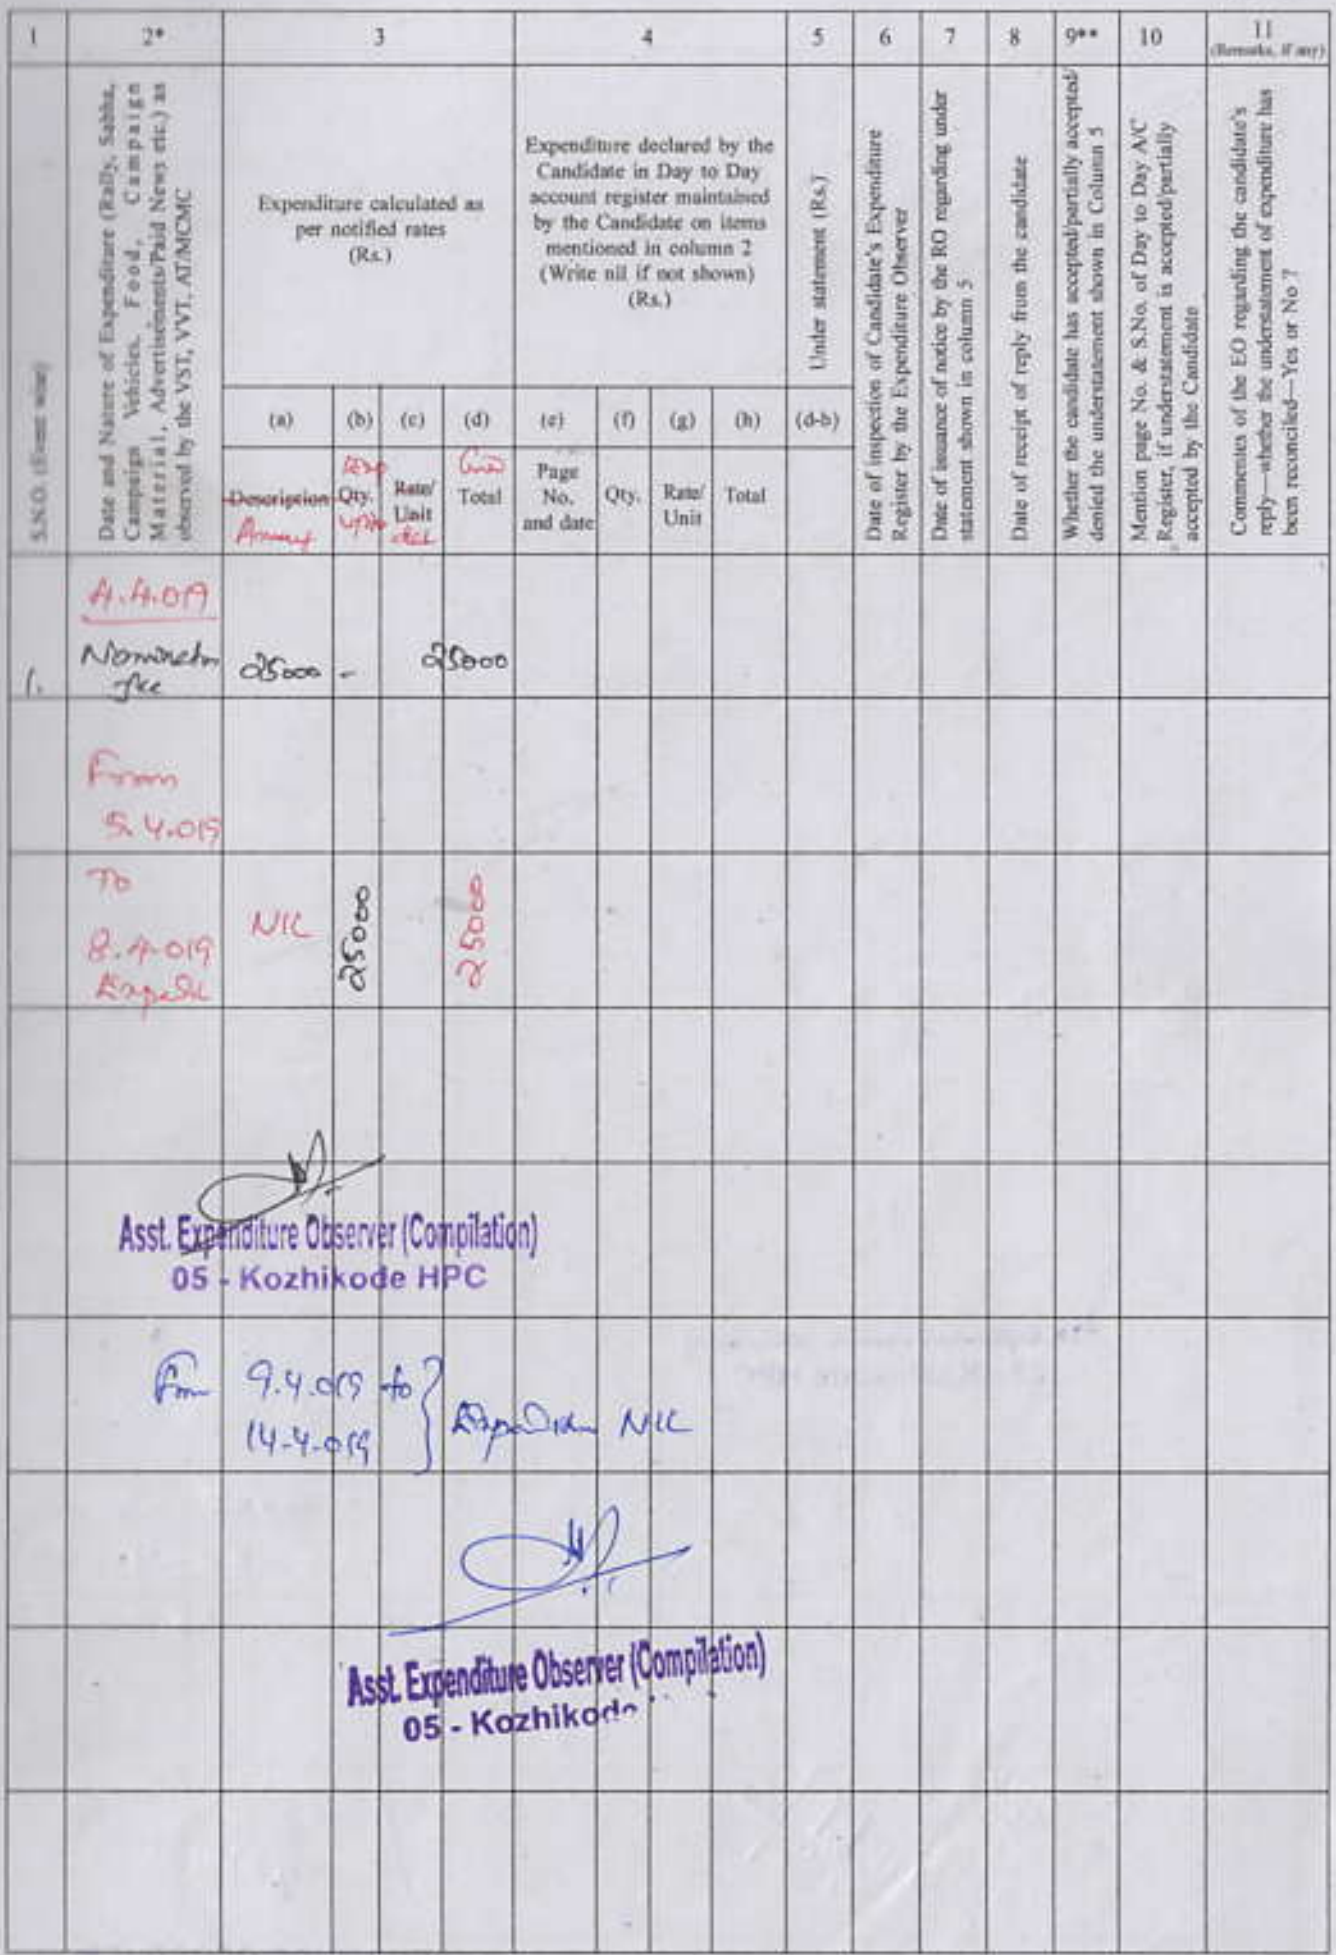 1 2* 3 4 5 6 7 8 9** 10 11
(Remarks, if any)
S.NO. (Event wise)
Date and Nature of Expenditure (Rally, Sabha,
Campaign Vehicles, Food, Campaign
Material, Advertisements/Paid News etc.) as
observed by the VST, VVT, AT/MCMC
Expenditure calculated as
per notified rates
(Rs.)
Expenditure declared by the
Candidate in Day to Day
account register maintained
by the Candidate on items
mentioned in column 2
(Write nil if not shown)
(Rs.)
Under statement (Rs.)
Date of inspection of Candidate's Expenditure
Register by the Expenditure Observer
Date of issuance of notice by the RO regarding under
statement shown in column 5
Date of receipt of reply from the candidate
Whether the candidate has accepted/partially accepted/
denied the understatement shown in Column 5
Mention page No. & S.No. of Day to Day A/C
Register, if understatement is accepted/partially
accepted by the Candidate
Commentes of the EO regarding the candidate's
reply—whether the understatement of expenditure has
been reconciled—Yes or No ?
(a) (b) (c) (d) (e) (f) (g) (h) (d-b)
Description
Qty.
Rate/
Unit
Total
Page
No.
and date
Qty.
Rate/
Unit
Total
4.4.019
1. Nomination 25000 - 25000
fee
From
5.4.019
To
8.4.019
NIL 25000 25000
Asst. Expenditure Observer (Compilation)
05 - Kozhikode HPC
From 9.4.019 to
14-4-019
NIL
Asst. Expenditure Observer (Compilation)
05 - Kozhikode